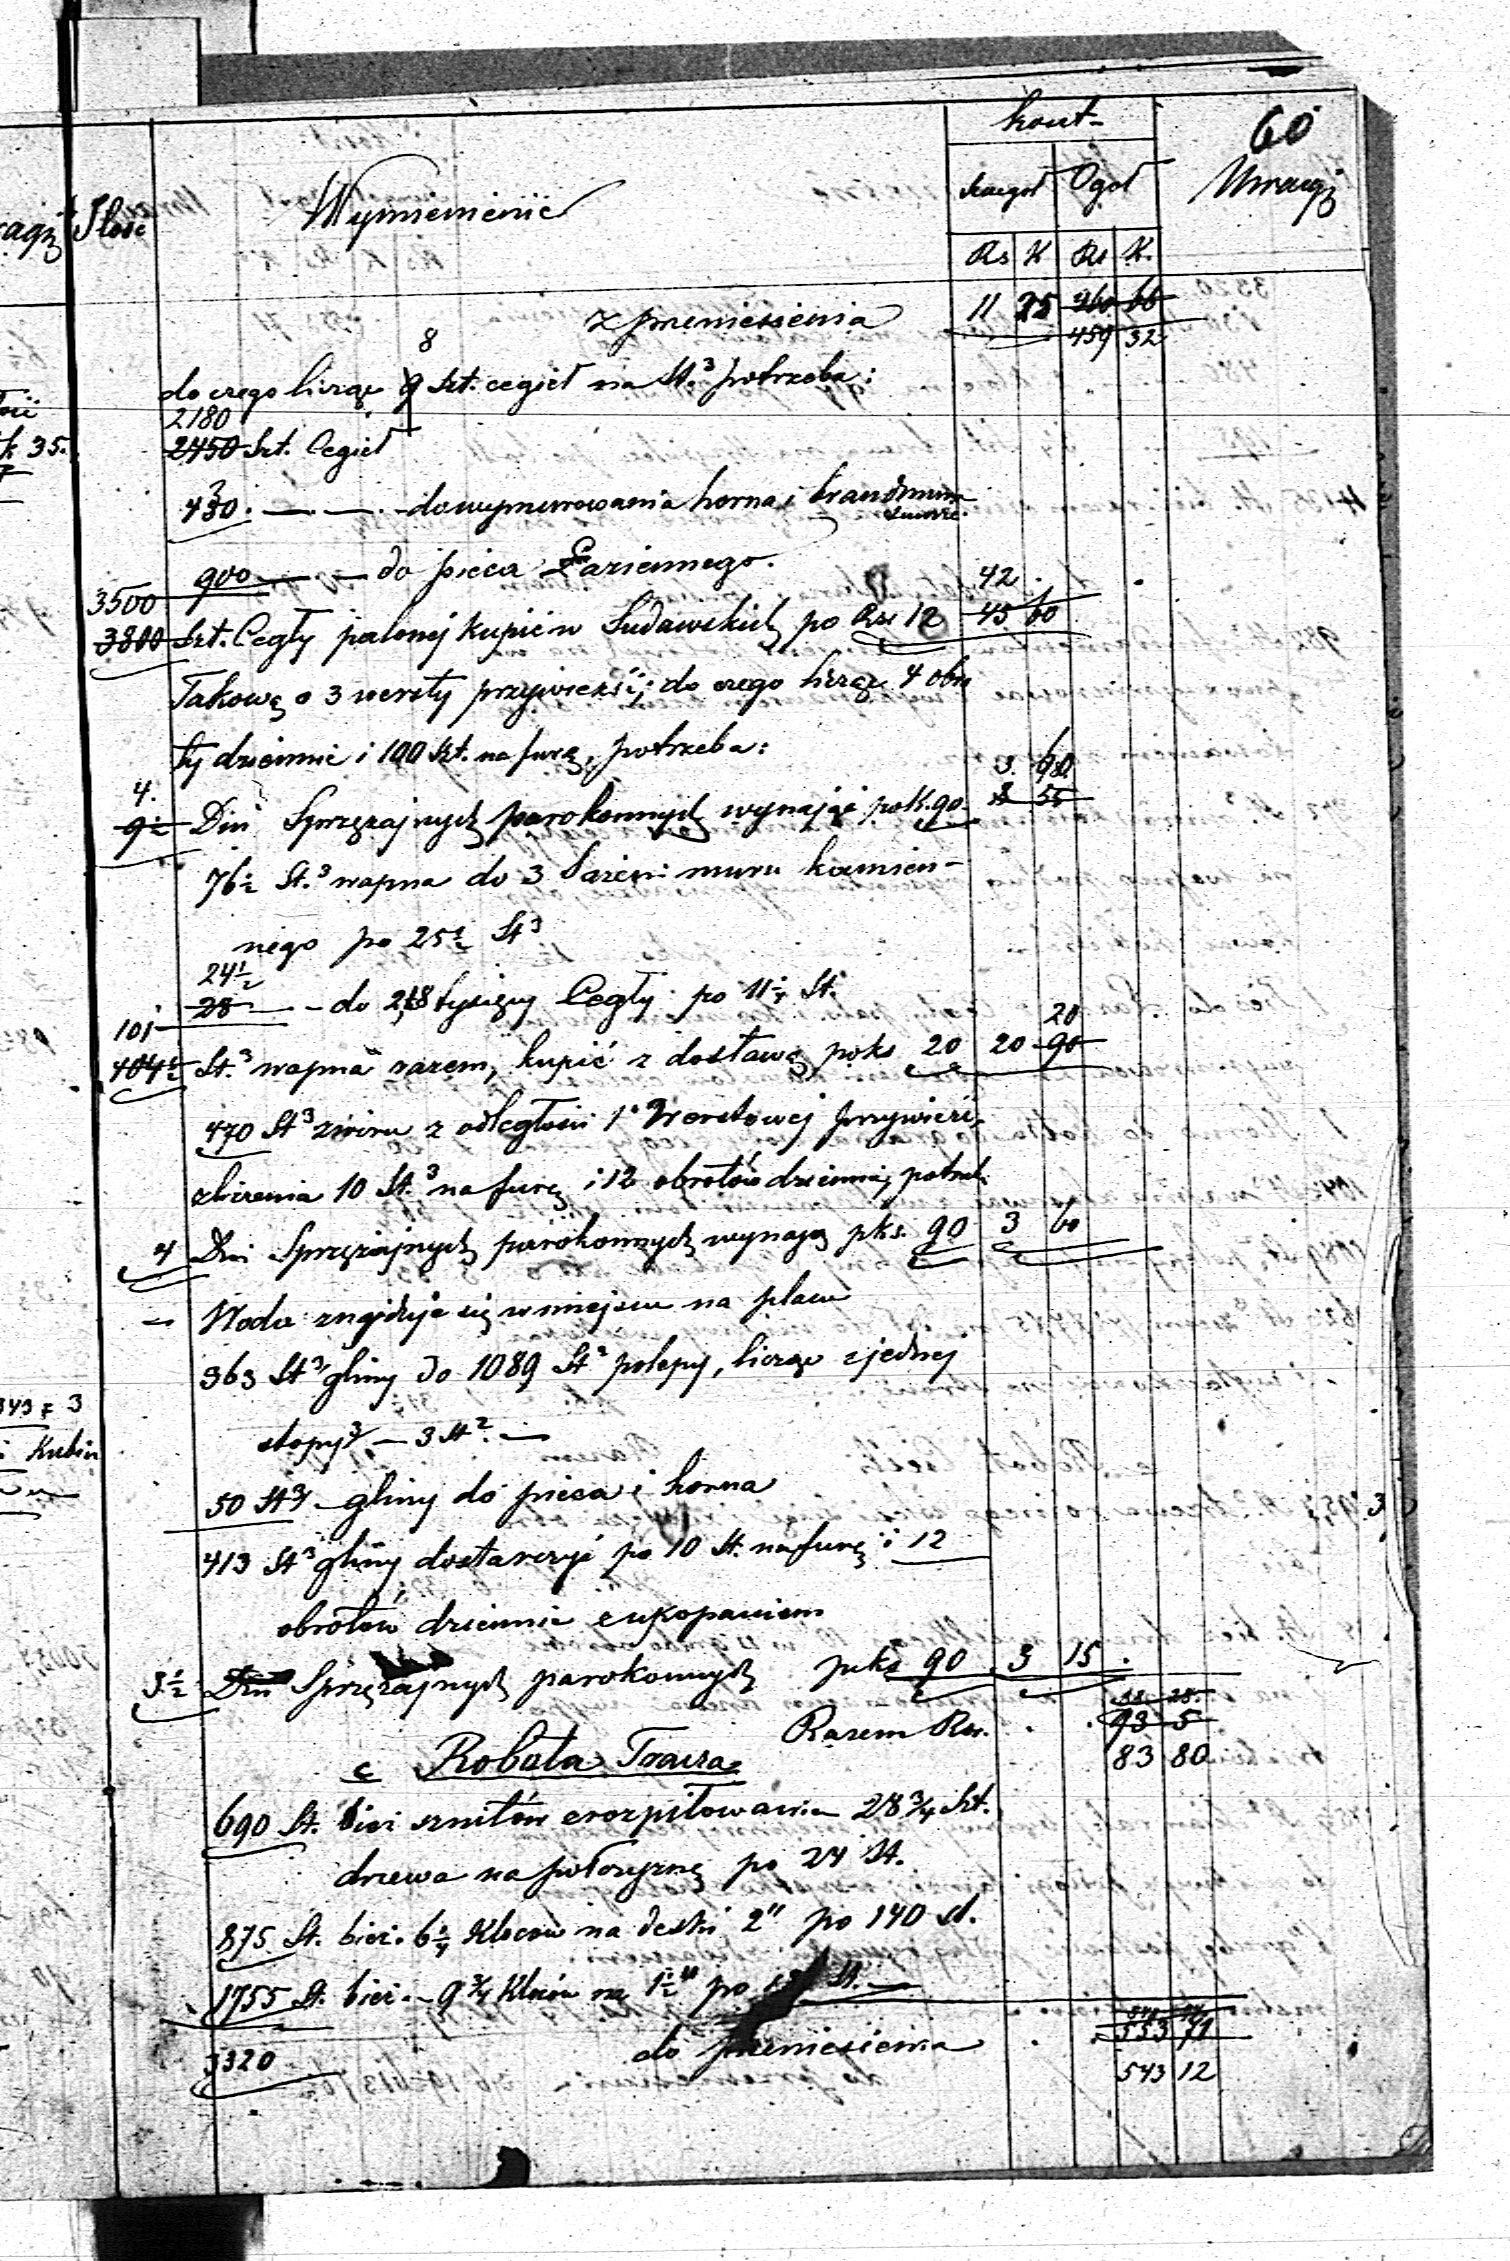 60
koszt
Ilość Wymienienie szczegół Ogół Uwagi
Rs K Rs K.
z przeniesienia 11 25 460 66
459 32
8
do czego licząc 9 szt. cegieł na St.³ potrzeba:
2180
2450 szt. Cegieł
430 . — . — do wymurowania horna i brandmura
900 — . — do pieca Łaziennego.
3500 42 .
3800 Szt. Cegły palonej kupić w Sudawskich po Rs 12 45 60
Takową o 3 wersty przywieść; do czego licząc 4 obro
ty dziennie i 100 szt. na furę, potrzeba:
4. 3. 60
9½ Dni Sprzężajnych parokonnych wynająć po K. 90. 8 55
76½ St.³ wapna do 3 Sażeni muru kamien-
nego po 25½ St³
24½
28 — - do 2,18 tysięcy Cegły po 11¼ St.
101 20
104½ St.³ wapna razem, kupić z dostawą po ks 20 20 90
470 St³ żwiru z odległości 1 Werstowej przywieźć,
zbierenia 10 St.³ na furę i 12 obrotów dziennie, potrzeb.
4 Dni Sprzężajnych parokonnych wynająć p ks. 90 3 60
— Woda znajduje się w miejscu na placu
363 St³ gliny do 1089 St² polepy, licząc z jednej
stopy³ — 3 St². —
50 St³ — gliny do pieca i horna
413 St³ gliny dostarczyć po 10 St. na furę i 12
obrotów dziennie z ukopaniem
3½ Dni Sprzężajnych parokonnych po ks 90 3 15.
88 28.
Razem Rs. . . 93 5
83 80
c Robota Tracza
690 St. bież sznitów z rozpiłowania 28¾ szt.
drzewa na połowiznę po 24 St.
875 St. bież. 6¼ Kloców na deski 2" po 140 st.
1755 St. bież. — 9¾ Kloców na 1½" po St. —
do przeniesienia . 553 71
3320 543 12